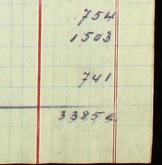 754
1503
741
33854